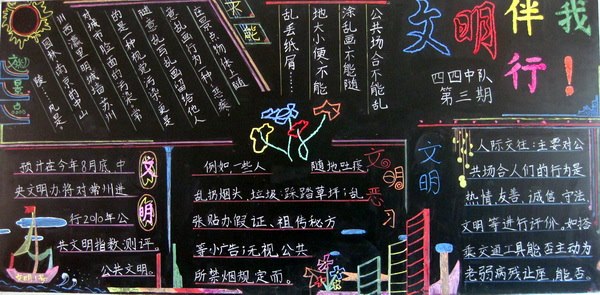 文明伴我
行!
四四中队
第三期
公共场合不能乱
涂乱画不能随
地大小便不能
乱丢纸屑……
不能
在景点物体上随
意乱画行为一种恶癖
随意乱写乱画留给他人
的是一种视觉污染更是
对城市脸面的污染常
州西瀛里明城墙苏州
园林南京的中山
陵……风景
景点
预计在今年8月底,中
央文明办将对常州进
行2010年公
共文明指数测评。
公共文明。
文明
例如,一些人 随地吐痰,
乱扔烟头,垃圾;踩踏草坪;乱
张贴办假证、祖传秘方
等小广告;无视公共
所禁烟规定而。
文明恶习
文明
人际交往:主要对公
共场合人们的行为是
热情、友善、诚信、守法、
文明等进行评价。如搭
乘交通工具能否主动为
老弱病残让座,能否